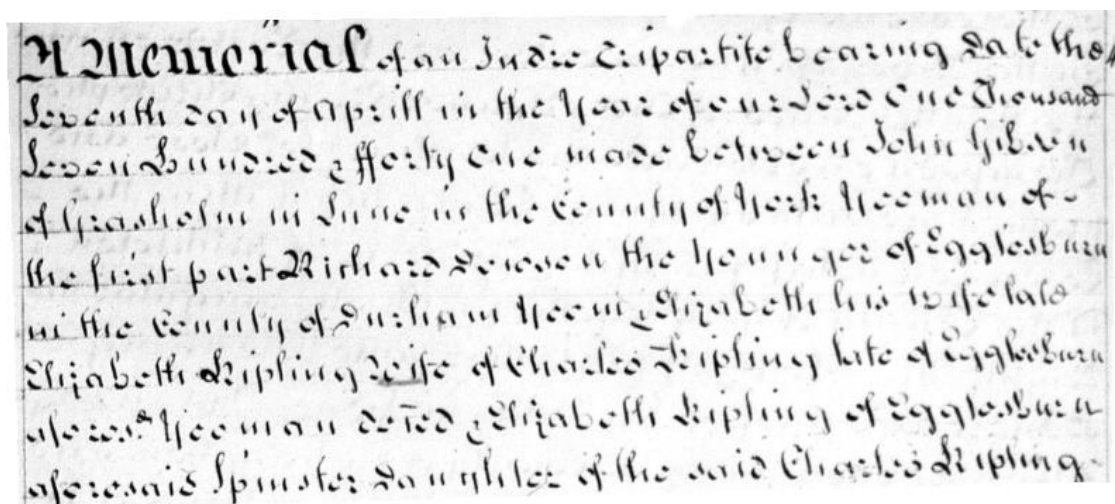 A Memorial of an Indre Tripartite bearing Date the
Seventh Day of Aprill in the Year of our Lord One Thousand
Seven Hundred & fforty One made between John Gibson
of Grasholm in Lune in the County of York Yeoman of
the first part Richard Dowson the Younger of Egglesburn
in the County of Durham Yeom & Elizabeth his wife late
Elizabeth Kipling Wife of Charles Kipling late of Egglesburn
afores.d Yeoman deced & Elizabeth Kipling of Egglesburn
aforesaid Spinster Daughter of the said Charles Kipling